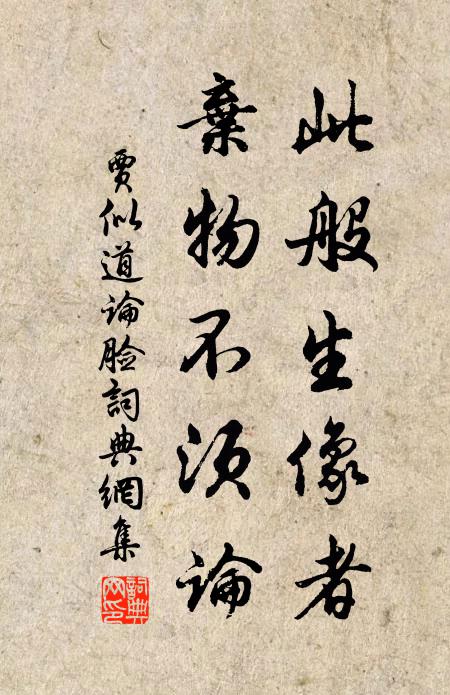 此般生像者
棄物不須論
賈似道論臉詞典網集
詞典
网印